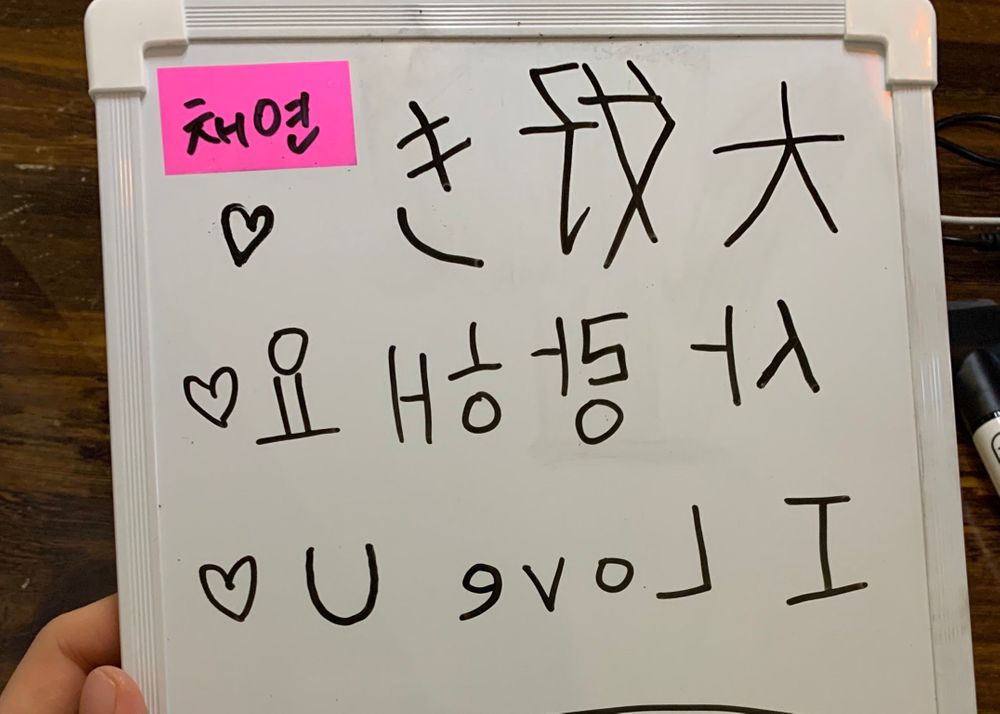 채연
大好き ♡
사랑해요 ♡
I Love U ♡